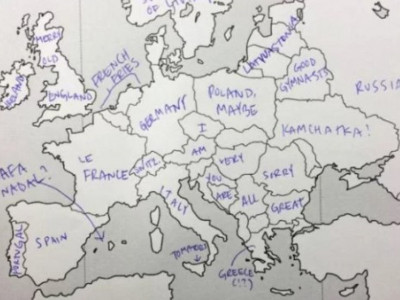 OF
LATVIASTONIA
MERRY
OLD
ENGLAND
IRELAND
FRENCH
FRIES
GERMANY
POLAND,
MAYBE
GOOD
GYMNASTS
RUSSIA
KAMCHATKA!
I
AM
VERY
SORRY
YOU
ARE
ALL
GREAT
LE
FRANCE
SWITZ.
ITALY
RAFA
NADAL?
PORTUGAL
SPAIN
TOMATOES
GREECE
(!?)